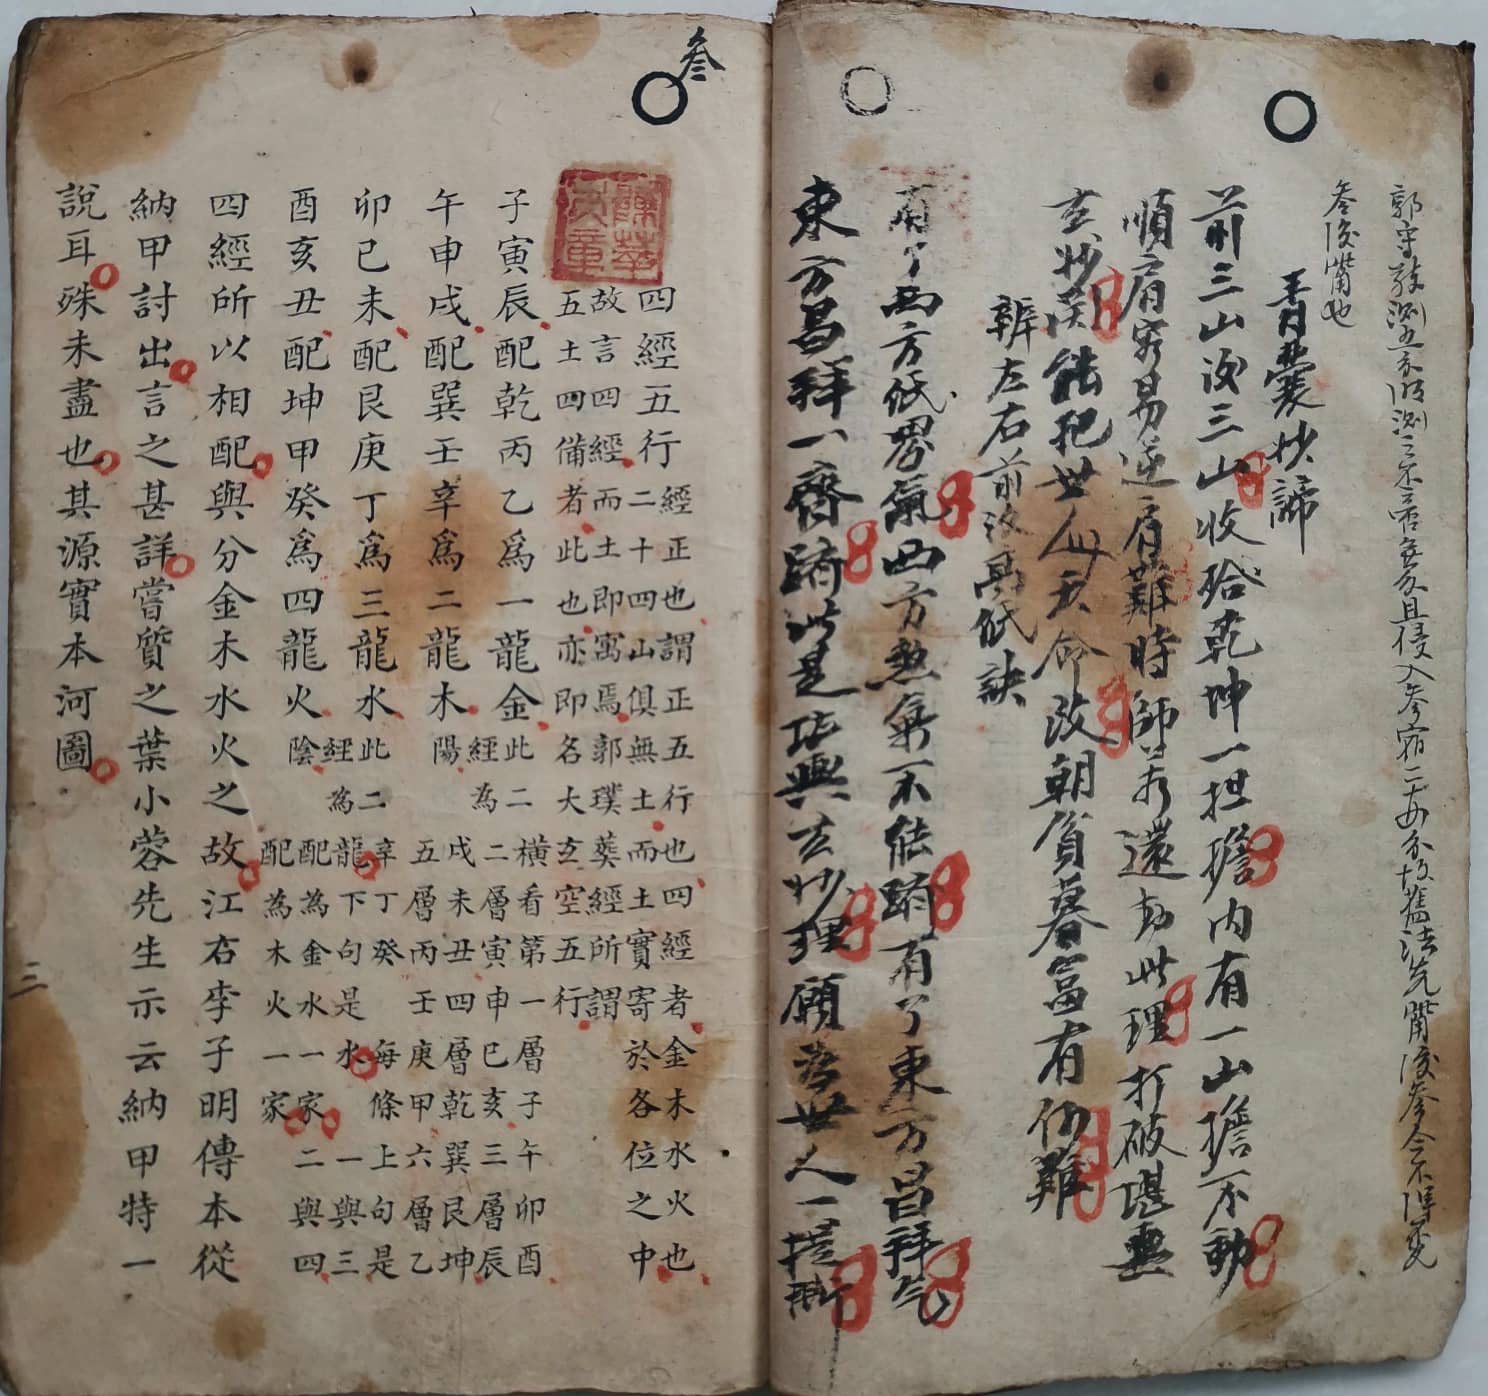 郭守敬測五分後測之不啻無分且侵入參宿二十五分故舊法先觜後參今不得不
參後觜也
青囊妙諦
前三山後三山收給乾坤一担擔内有一山擔不動
順肩容易逆肩難時師若還劫此理打破堪輿
玄妙関能把世人天命改朝貧暮富有何難
辨左右前後高低訣
有了西方低界氣西方煞氣不能踴有了東方昌拜氣
東方昌拜一齊踴此是堪輿玄妙理願爲世人一提撕
叁
四經五行
經正也謂正五行也四經者金木水火也
二十四山俱無土而土實寄於各位之中
故言四經而土即寓焉郭璞葬經所謂
五土四備者此也亦即名大玄空五行
子寅辰配乾丙乙爲一龍金
午申戌配巽壬辛爲二龍木
此二經為陽
橫看第一層子午卯酉
二層寅申巳亥三層辰
戌未丑四層乾巽艮坤
五層丙壬庚甲六層乙
卯巳未配艮庚丁爲三龍水
酉亥丑配坤甲癸爲四龍火
此二經為陰
辛丁癸每條上句是
龍下句是水一與三
配為金水一家二與四
配為木火一家
四經所以相配與分金木水火之故江右李子明傳本從
納甲討出言之甚詳嘗質之葉小蓉先生示云納甲特一
說耳殊未盡也其源實本河圖
三